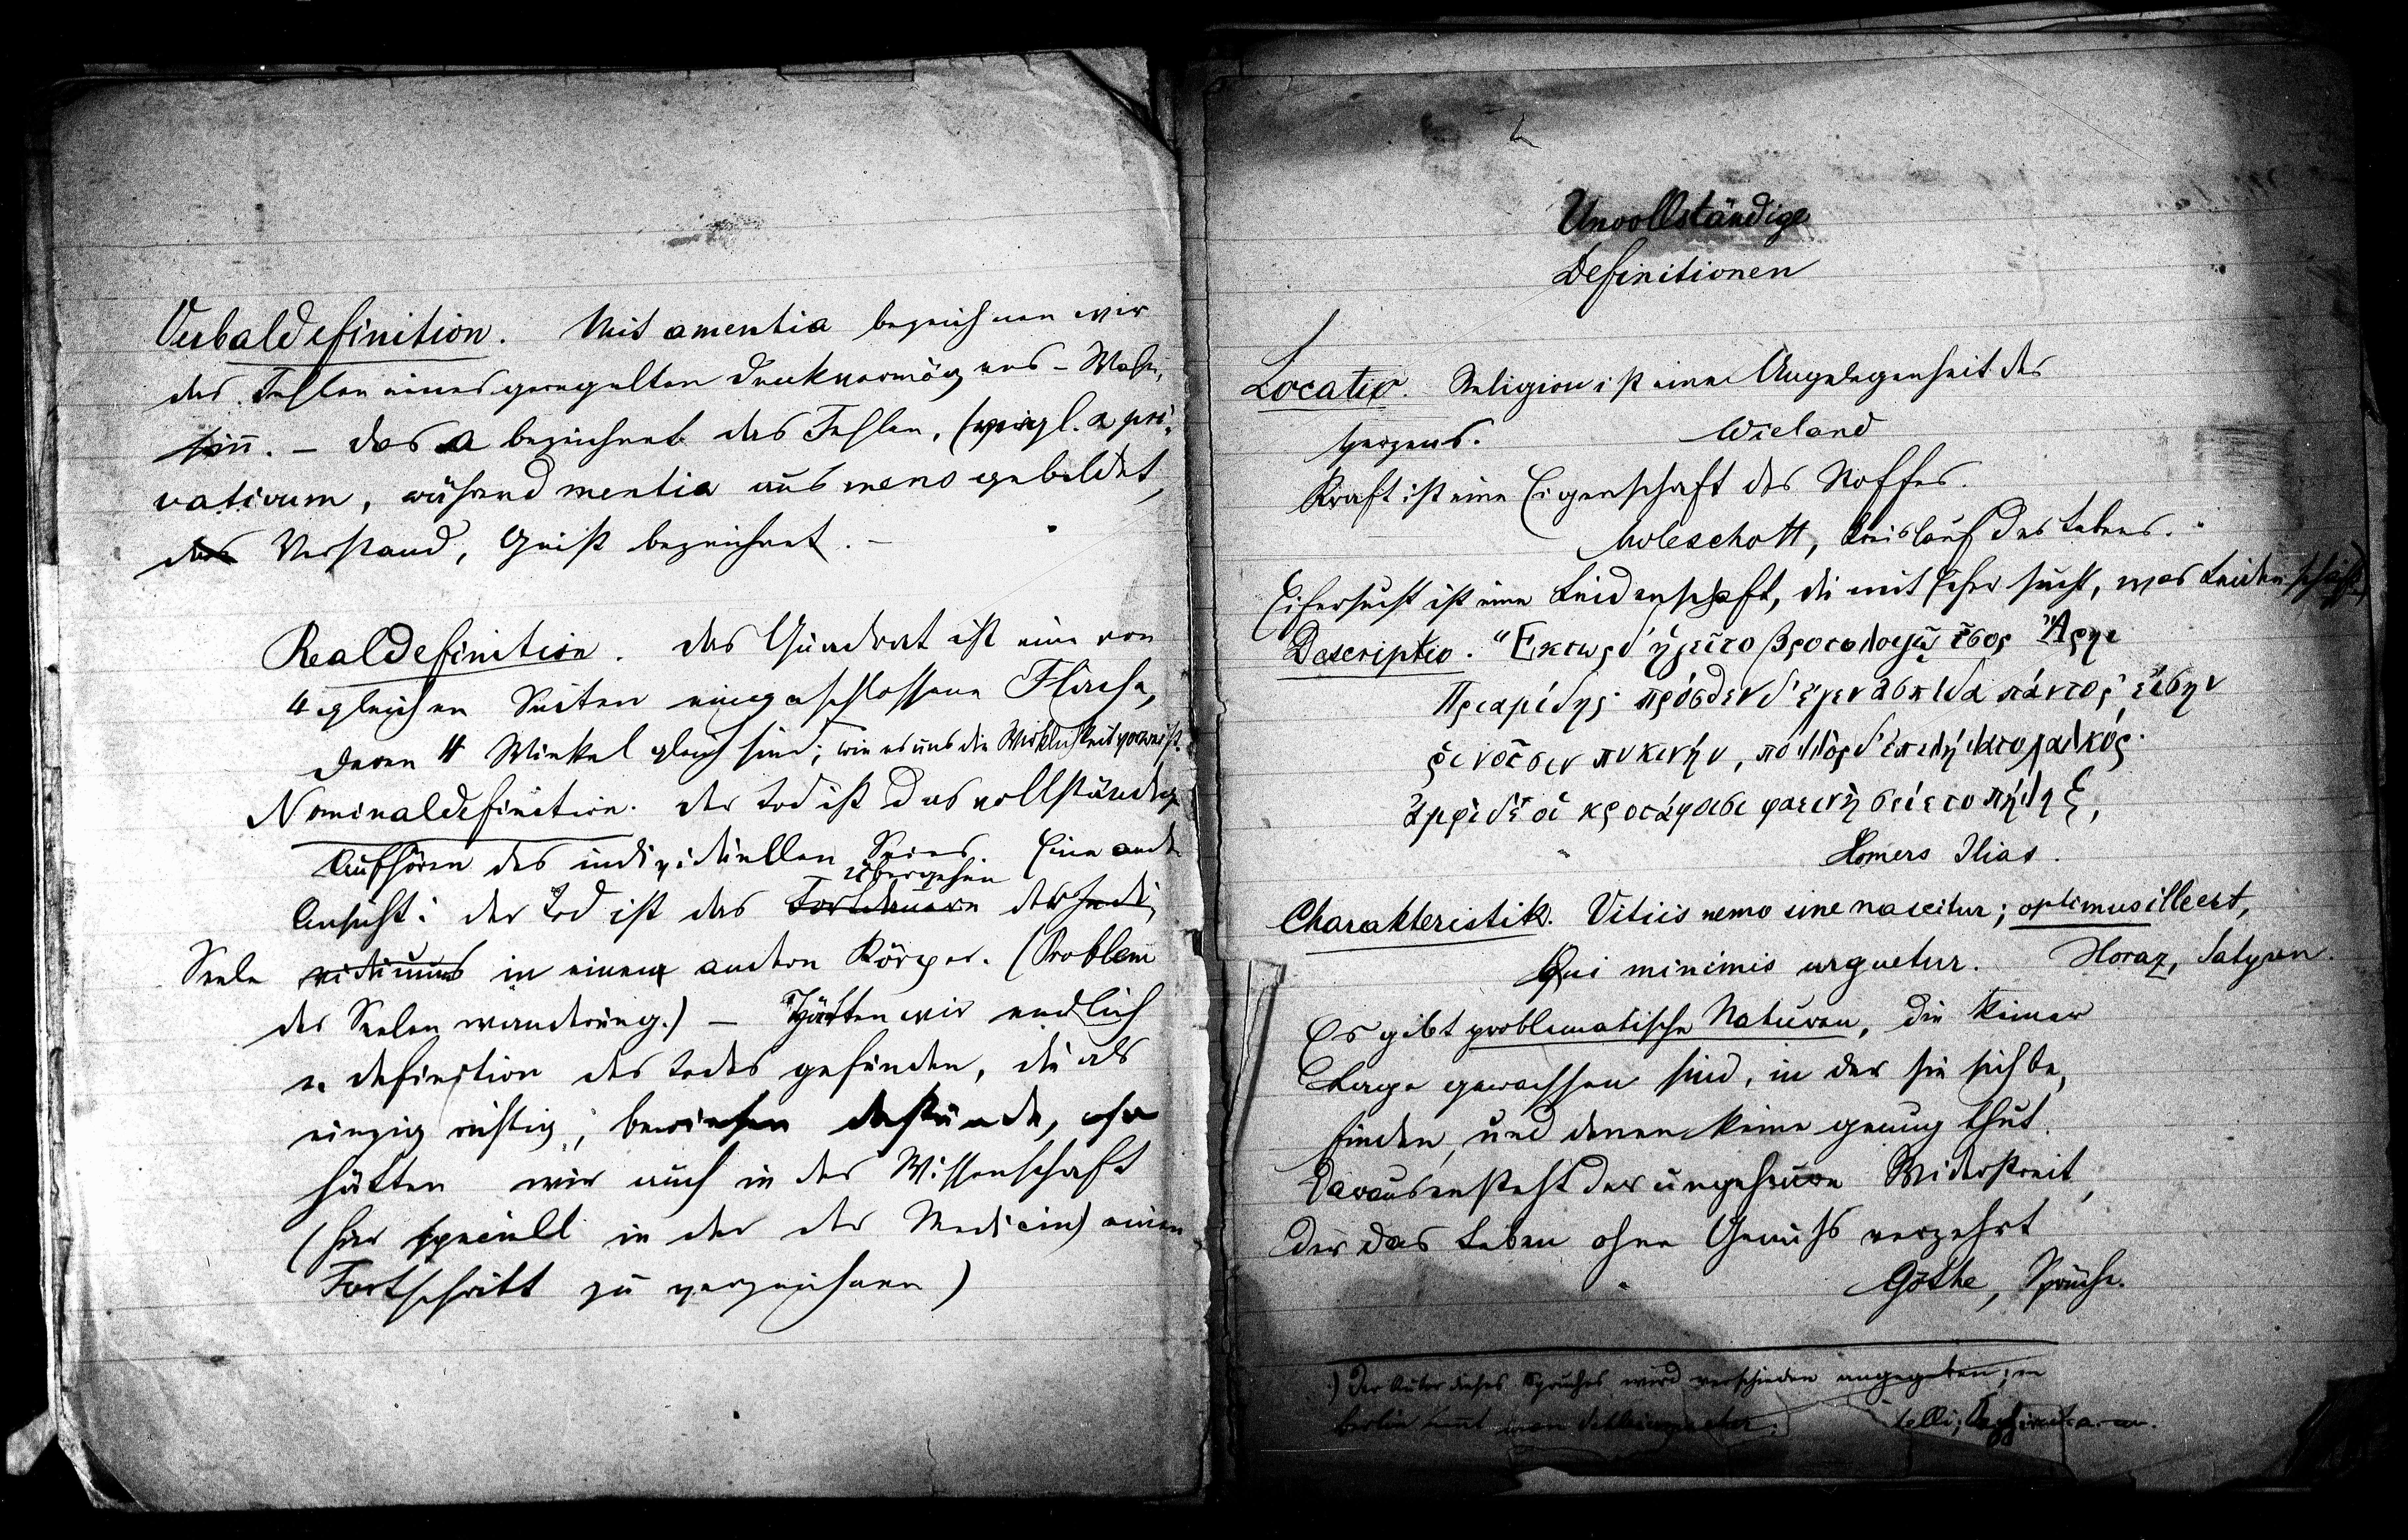 Verbaldefinition. Mit amentia bezeichnen wir
das Fehlen eines geregelten Denkvermögens – Wahn-
sinn. – Das a bezeichnet das Fehlen, (vergl. α pri-
vativum, während mentia aus mens gebildet,
das Verstand, Geist bezeichnet. –
Realdefinition. Das Quadrat ist eine von
4 gleichen Seiten eingeschlossene Fläche,
deren 4 Winkel gleich sind; wie es uns die Wirklichkeit
Nominaldefinition. Der Tod ist das vollständige
Aufhören des individuellen Seins. Eine andre
übergehen
Ansicht: Der Tod ist das Fortdauern der Indi-
Seele viduums in einem andern Körper. (Problem
der Seelenwanderung.) – Hätten wir endlich
e. Definition des Todes gefunden, die als
einzig richtig, bewiesen dastünde, so
hätten wir auch in der Wissenschaft
(hier speciell in der der Medicin) einen
Fortschritt zu verzeichnen)
2
Unvollständige
Definitionen
Locatio. Religion ist eine Angelegenheit des
Herzens. Wieland
Kraft ist eine Eigenschaft des Stoffes.
Moleschott, Kreislauf des Lebens.
Eifersucht ist eine Leidenschaft, die mit Eifer sucht, was Leiden schafft.
Descriptio. "Εκτωρ δ' ἡγεῖτο βροτολοιγῷ ἶσος Ἄρηι
Πριαμίδης· πρόσθεν δ' ἔχεν ἀσπίδα πάντοσ' ἐίσην
ῥινοῖσιν πυκινήν, πολλὸς δ' ἐπελήλατο χαλκός·
ἀμφὶ δέ οἱ κροτάφοισι φαεινὴ σείετο πήληξ,
Homers Ilias.
Charakteristik. Vitiis nemo sine nascitur; optimus ille est,
Qui minimis urguetur. Horaz, Satyren.
Es gibt problematische Naturen, die keiner
Lage gewachsen sind, in der sie sich be-
finden, und denen keine genug thut.
Daraus entsteht der ungeheure Widerstreit,
der das Leben ohne Genuß verzehrt
Göthe, Sprüche.
Der Autor dieses Spruches wird verschieden angegeben; in
Berlin nennt man Schleiermacher.